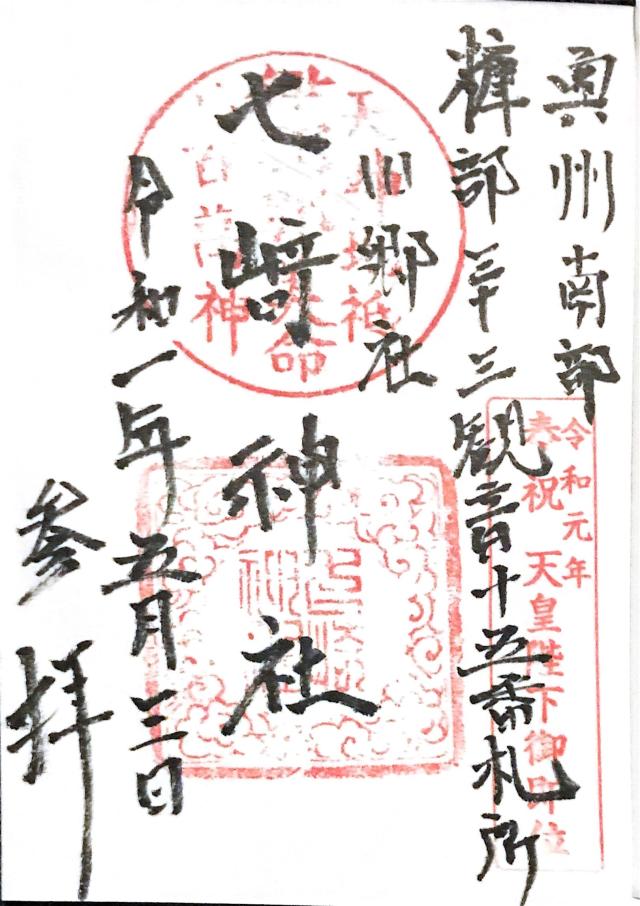 奥州南部
糠部三十三観音十五番札所
旧郷社
七崎神社
令和一年五月三日
参拝
令和元年
奉祝 天皇陛下御即位